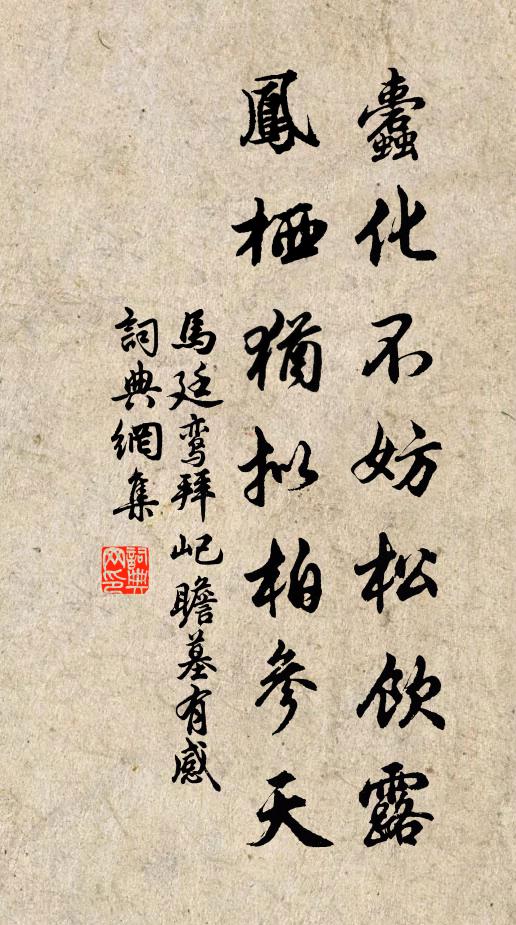 蠹化不妨松飲露
鳳栖猶拟柏參天
馬廷鸾拜屺瞻墓有感
詞典網集
詞典網印